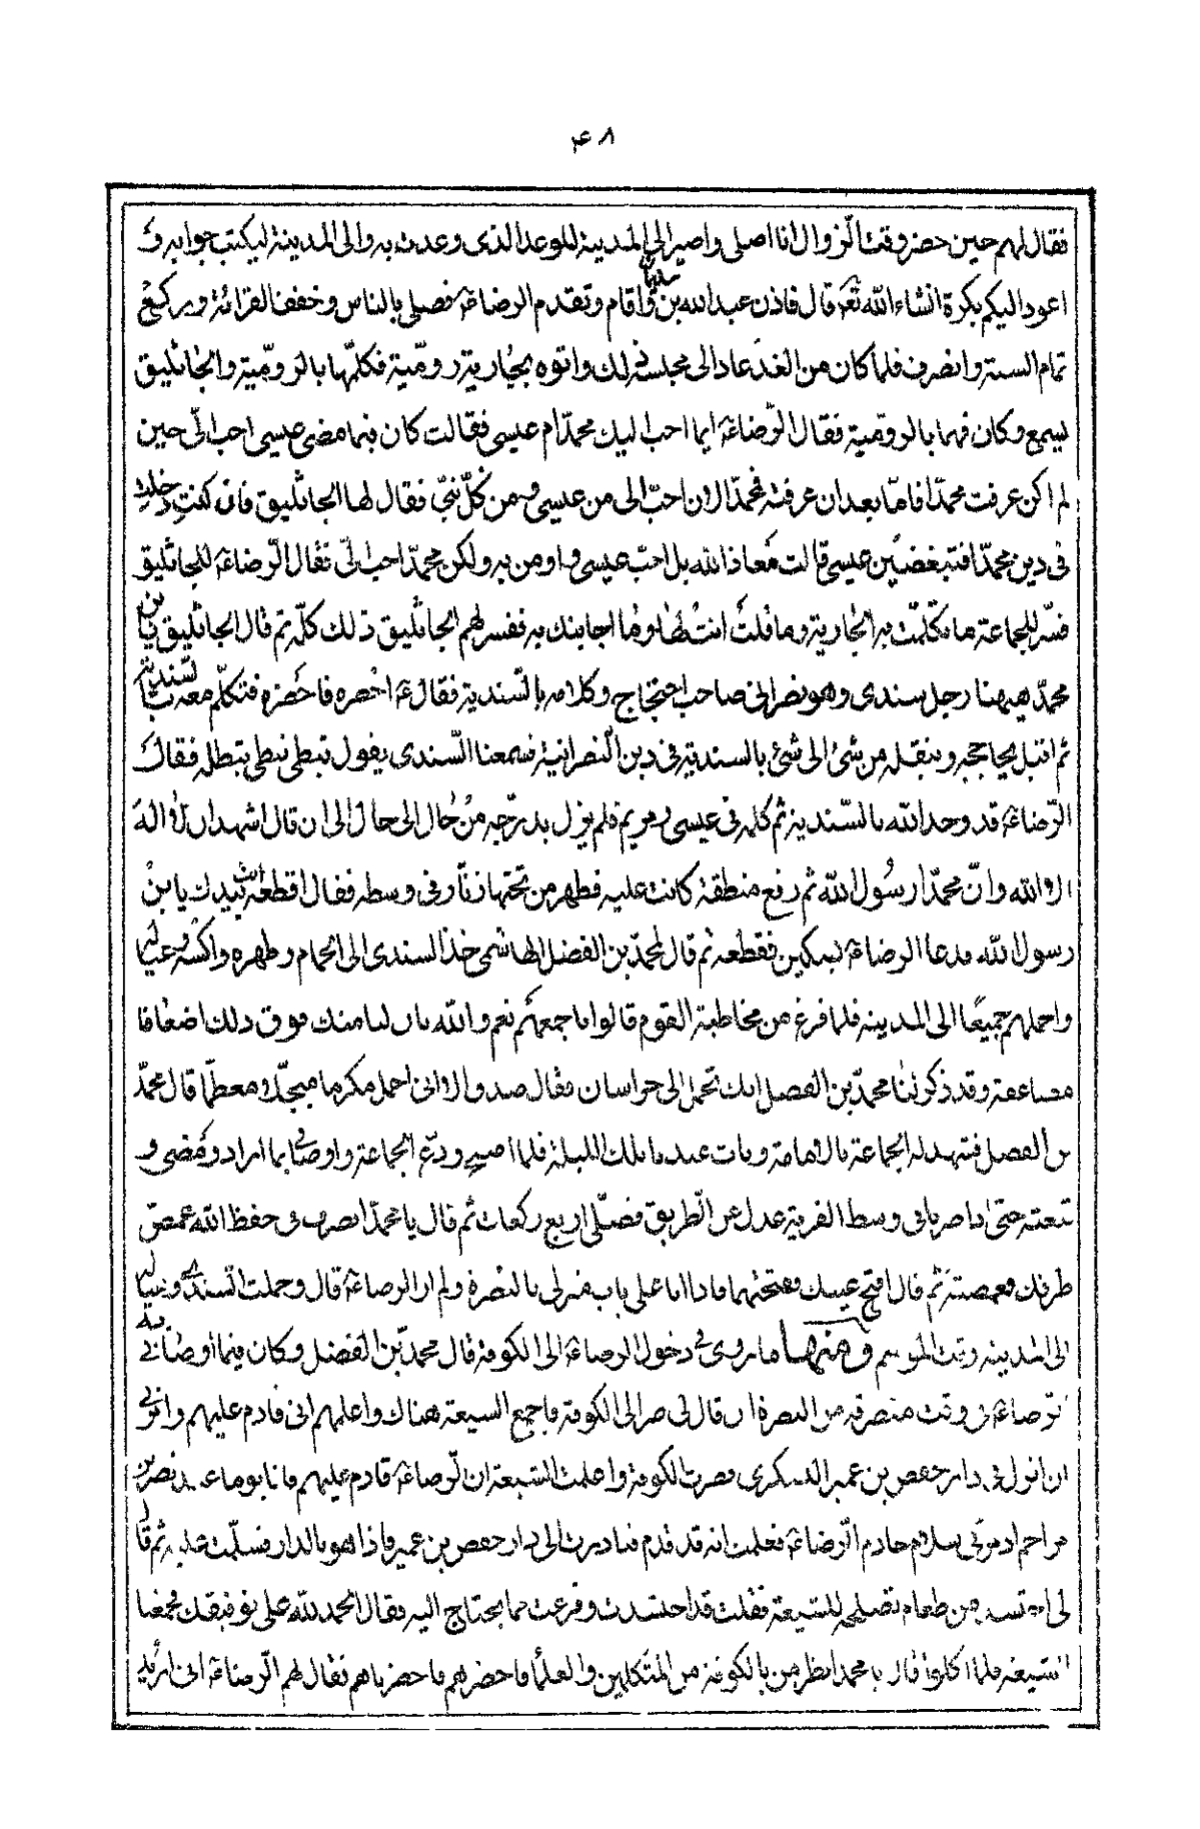 ۴۸
فقال لهم حين حضر وقت الزوال انا اصلى واصير الى المدينة للوعد الذى وعدت به والى المدينة ليكتب جوابه و
اعود اليكم بكرة انشاء الله تعه قال فاذن عبد الله بن سليمان واقام وتقدم الرضاءَ فصلى بالناس وخفف القرائة وركع
تمام السنة وانصرف فلما كان من الغد عاد الى مجلسه ذلك واتوه بجارية روميّة فكلّمها بالروميّة والجاثليق
يسمع وكان فهما بالروميّة فقال الرّضاءَ ايما احب اليك محمّد ام عيسى فقالت كان فيما مضى عيسى احب الىّ حين
لم اكن عرفت محمّدا فامّا بعد ان عرفته فمحمّد الان احبّ الى من عيسى ومن كلّ نبىّ فقال لها الجاثليق فاذا كنتِ دخلتِ
فى دين محمّد افتبغضين عيسى قالت معاذ الله بل احبّ عيسى واومن به ولكن محمّد احب الىّ فقال الرّضاءَ للجاثليق
فسّر للجماعة ما تكلّمت به الجارية وما قلتَ انت لها وما اجابتك به ففسر لهم الجاثليق ذلك كلّه ثم قال الجاثليق يابن
محمّد هيهنا رجل سندى وهو نصرانى صاحب احتجاج وكلام بالسّندية فقال ءَ احضره فاحضره فتكلّم معه بالسّندية
ثم اقبل يحاججه وينقله من شئ الى شئ بالسندية فى دين النّصرانية فسمعنا السّندى يقول نبطى نبطى نبطله فقال
الرّضاءَ قد وحد الله بالسّندية ثم كلمه فى عيسى ومريم فلم يزل يدرّجه من حال الى حال الى ان قال اشهد ان لا اله
الا الله وانّ محمّدا رسول الله ثم رفع منطقة كانت عليه فظهر من تحتها زنّار فى وسطه فقال اقطعه انت بيدك يابن
رسول الله فدعا الرضاءَ بسكين فقطعه ثم قال لمحمّد بن الفضل الهاشمى خذ السندى الى الحمام وطهره واكسه وعياله
واحملهم جميعًا الى المدينه فلما فرغ من مخاطبة القوم قالوا باجمعهم نعم والله بان لنا منك فوق ذلك اضعافا
مضاعفة وقد ذكر لنا محمّد بن الفضل انك تحمل الى خراسان فقال صدق الا انى احمل مكرما مبجّلا ومعظّما قال محمّد
بن الفضل فشهد له الجماعة بالامامة وبات عندنا تلك الليلة فلما اصبح ودّع الجماعة واوصانى بما اراد ومضى و
تبعته حتى اذا صرنا فى وسط القرية عدل عن الطريق فصلّى اربع ركعات ثم قال يا محمّد انصرف فى حفظ الله غمض
طرفك فغمضته ثم قال افتح عينيك ففتحتهما فاذا انا على باب منزلى بالبصرة ولم ار الرضاءَ قال وحملت السّندى وعياله
الى المدينه وقت الموسم ومنها ما روى فى دخول الرضاءَ الى الكوفة قال محمّد بن الفضل وكان فيما اوصانى به
الرّضاءَ فى وقت منصرفه من البصرة ان قال لى صر الى الكوفة فاجمع الشيعة هناك واعلمهم انى قادم عليهم وامرنى
ان انزل فى دار حفص بن عمير اليشكرى فصرت الكوفة واعلمت الشيعة ان الرّضاءَ قادم عليهم فانا يوما عند نصر بن
مزاحم اذ مرّ بى سلام خادم الرّضاءَ فعلمت انه قد قدم فبادرت الى دار حفص بن عمير فاذا هو بالدار فسلّمت عليه ثم قال
لى احتشد من طعام تصلحه للشيعة فقلت قد احتشدت وفرغت مما يحتاج اليه فقال الحمد لله على توفيقك فجمعنا
الشيعة فلما اكلوا قال يا محمد انظر من بالكوفة من المتكلمين والعلماء فاحضرهم فاحضرناهم فقال لهم الرّضاءَ انى اريد